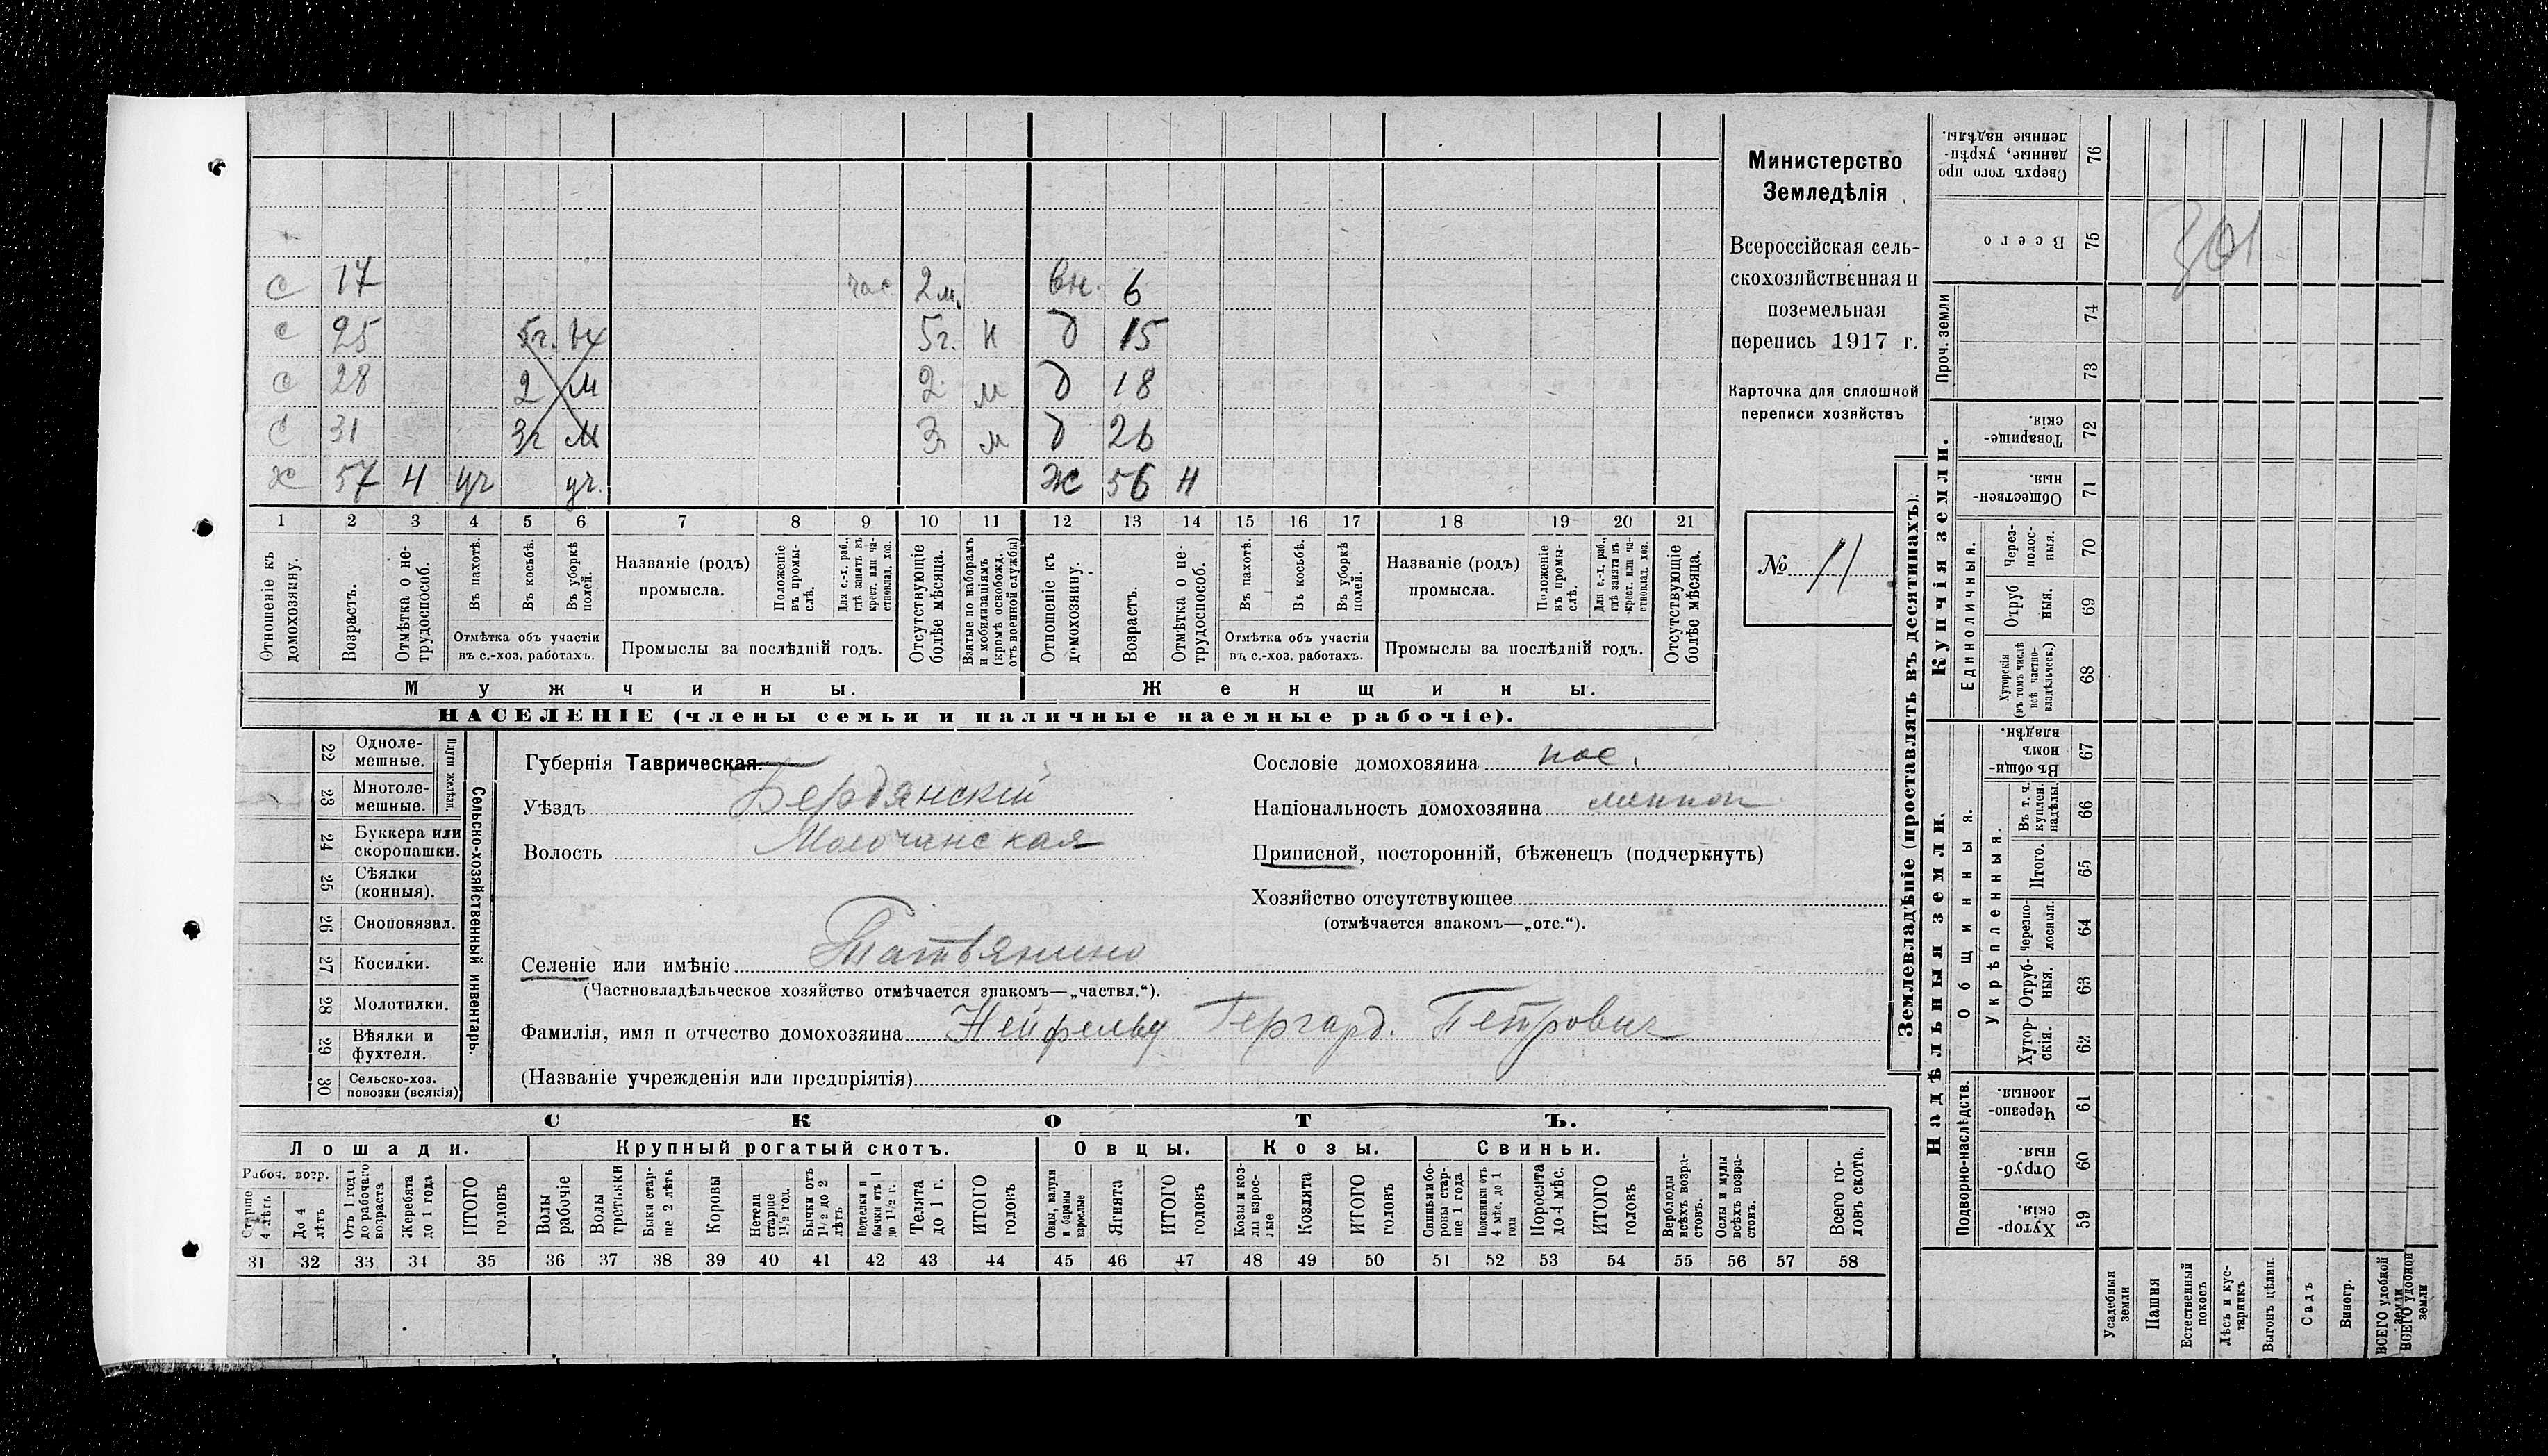 с 17 час 2 м. вн. 6
с 25 5г. м 5г. м д 15
с 28 2 м 2 м д 18
с 31 3г м 3 м д 26
х 57 н уч уч. ж 56 н
1 2 3 4 5 6 7 8 9 10 11 12 13 14 15 16 17 18 19 20 21
Отношеніе къ домохозяину.
Возрастъ.
Отмѣтка о нетрудоспособ.
Въ пахотѣ.
Въ косьбѣ.
Въ уборкѣ полей.
Отмѣтка объ участіи
въ с.-хоз. работахъ.
Названіе (родъ)
промысла.
Положеніе въ промыслѣ.
Для с.-х. раб., гдѣ занятъ въ крест. или частновлад. хоз.
Промыслы за послѣдній годъ.
Отсутствующіе болѣе мѣсяца.
Взятые по наборамъ и мобилизаціямъ (кромѣ освобожд. отъ военной службы)
Отношеніе къ домохозяину.
Возрастъ.
Отмѣтка о нетрудоспособ.
Въ пахотѣ.
Въ косьбѣ.
Въ уборкѣ полей.
Отмѣтка объ участіи
въ с.-хоз. работахъ.
Названіе (родъ)
промысла.
Положеніе въ промыслѣ.
Для с.-х. раб., гдѣ занята въ крест. или частновлад. хоз.
Промыслы за послѣдній годъ.
Отсутствующіе болѣе мѣсяца.
Мужчины. Женщины.
НАСЕЛЕНІЕ (члены семьи и наличные наемные рабочіе).
Министерство
Земледѣлія
Всероссійская сель-
скохозяйственная и
поземельная
перепись 1917 г.
Карточка для сплошной
переписи хозяйствъ
№ 11
22 Одноле-
мешные.
23 Многоле-
мешные.
Плуги желѣзн.
24 Буккера или
скоропашки.
25 Сѣялки
(конныя).
26 Сноповязал.
27 Косилки.
28 Молотилки.
29 Вѣялки и
фухтеля.
30 Сельско-хоз.
повозки (всякія)
Сельско-хозяйственный инвентарь.
Губернія Таврическая.
Уѣздъ Бердянскій
Волость Молочанская
Селеніе или имѣніе Татьянино
(Частновладѣльческое хозяйство отмѣчается знакомъ—„частвл.“).
Фамилія, имя и отчество домохозяина Нейфельд Гергард. Петрович
(Названіе учрежденія или предпріятія)
Сословіе домохозяина пос.
Національность домохозяина меннон
Приписной, посторонній, бѣженецъ (подчеркнуть)
Хозяйство отсутствующее
(отмѣчается знакомъ—„отс.“).
СКОТЪ.
Лошади. Крупный рогатый скотъ. Овцы. Козы. Свиньи.
Рабоч. возр.
Старше 4 лѣтъ
До 4 лѣтъ
Отъ 1 года до рабочаго возраста
Жеребята до 1 года
ИТОГО головъ
Волы рабочіе
Волы третьяки
Быки старше 2 лѣтъ
Коровы
Нетели старше 1½ год.
Бычки отъ 1½ до 2 лѣтъ
Подтелки и бычки отъ 1 до 1½ г.
Телята до 1 г.
ИТОГО головъ
Овцы, валухи и бараны взрослые
Ягнята
ИТОГО головъ
Козы и козлы взрослые
Козлята
ИТОГО головъ
Свиньи и боровы старше 1 года
Подсвинки отъ 4 мѣс. до 1 года
Поросята до 4 мѣс.
ИТОГО головъ
Верблюды всѣхъ возрастовъ.
Ослы и мулы всѣхъ возрастовъ.
Всего головъ скота.
31 32 33 34 35 36 37 38 39 40 41 42 43 44 45 46 47 48 49 50 51 52 53 54 55 56 57 58
Землевладѣніе (проставлять въ десятинахъ).
Купчія земли.
Надѣльныя земли.
Сверхъ того проданные, укрѣпленные надѣлы. 76
Всего 75
301
Проч. земли
74
73
Товарищескія. 72
Общественныя. 71
Единоличныя.
Черезполосныя. 70
Отрубныя. 69
Хуторскія (въ томъ числѣ всѣ частновладѣльческ.) 68
Общинныя.
Въ общинномъ владѣн. 67
Укрѣпленныя.
Въ т. ч. куплен. надѣлы. 66
Итого. 65
Черезполосныя. 64
Отрубныя. 63
Хуторскія. 62
Подворно-наслѣдств.
Черезполосныя. 61
Отрубныя. 60
Хуторскія. 59
Усадебныя земли
Пашня
Естественный покосъ
Лѣсъ и кустарникъ
Выгонъ цѣлин.
Садъ
Виногр.
ВСЕГО удобной земли
ВСЕГО удобной земли